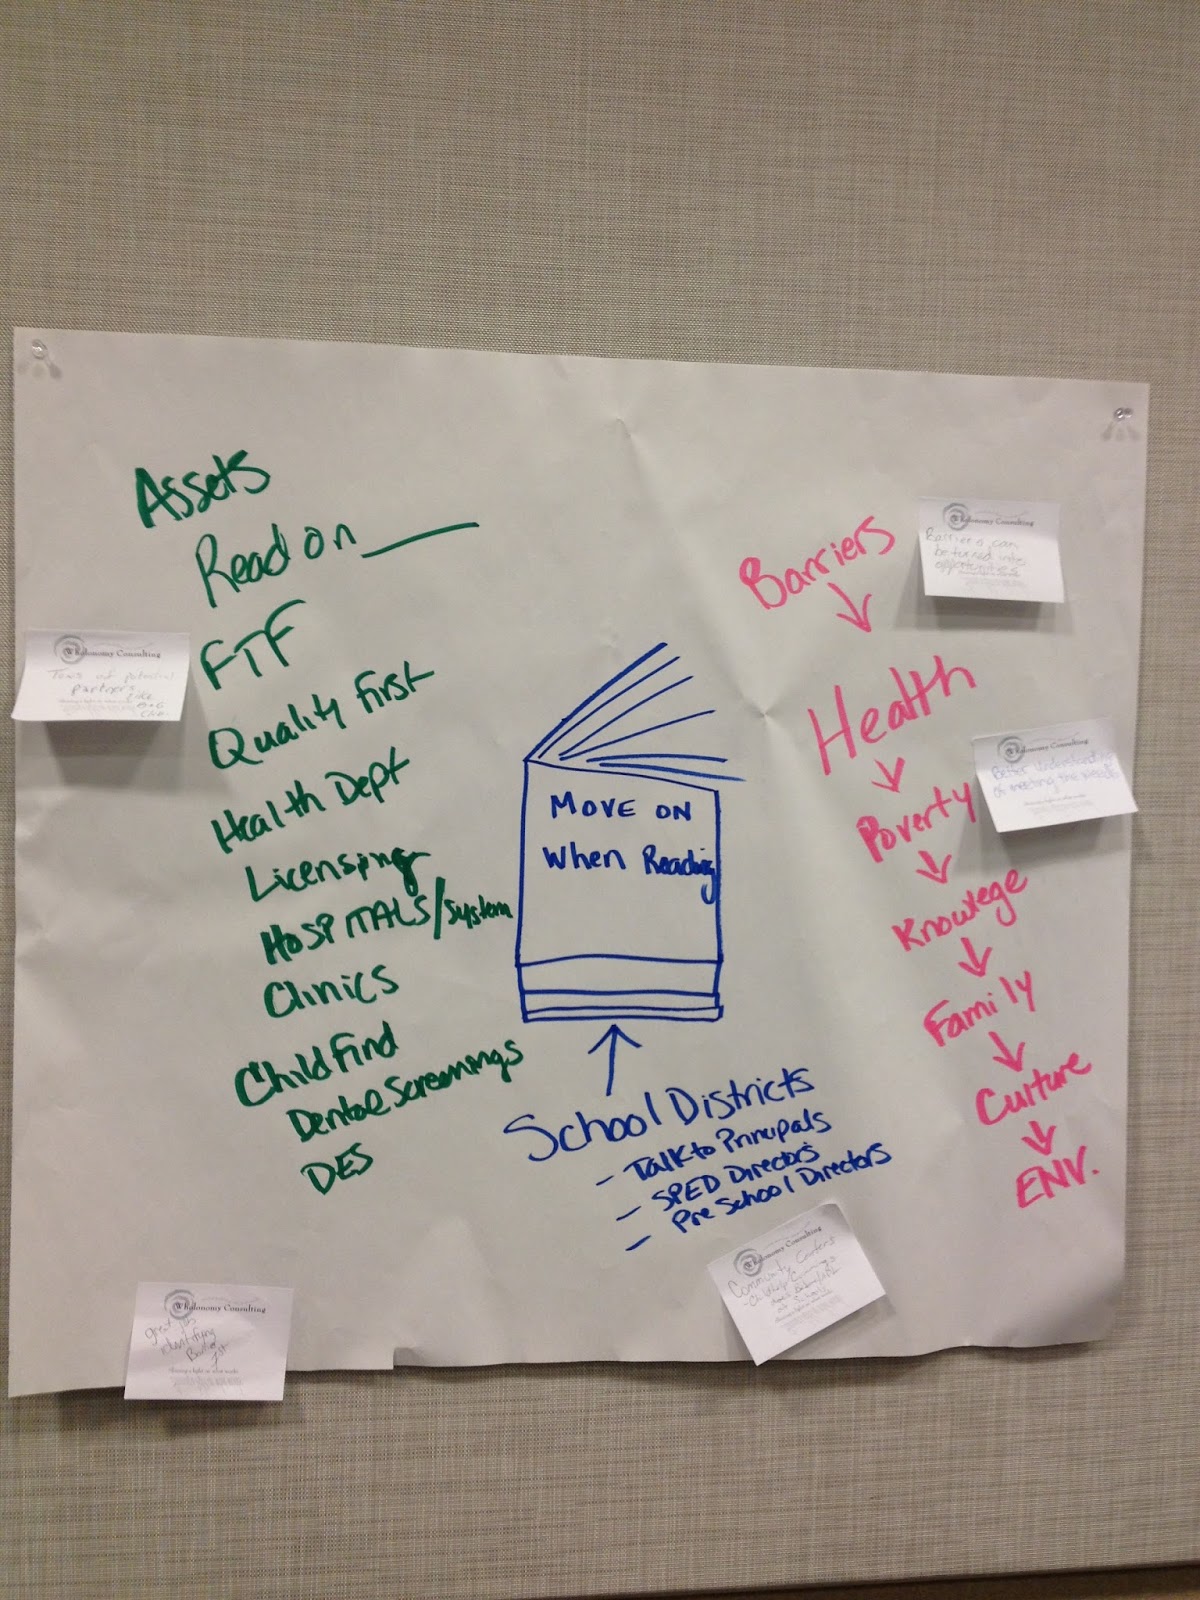 Assets
Read on ____
FTF
Quality First
Health Dept
Licensing
HOSPITALS/System
Clinics
Child Find
Dental Screenings
DES
MOVE ON
When Reading
School Districts
- Talk to Principals
- SPED Directors
- Pre School Directors
Barriers
Health
Poverty
Knowlege
Family
Culture
ENV.
Wholonomy Consulting
Barriers can
be turned into
opportunities
Wholonomy Consulting
Tons of potential
partners
Like
Wholonomy Consulting
Better Understanding
of meeting the needs
Wholonomy Consulting
Community Centers
Wholonomy Consulting
great
identifying
1st